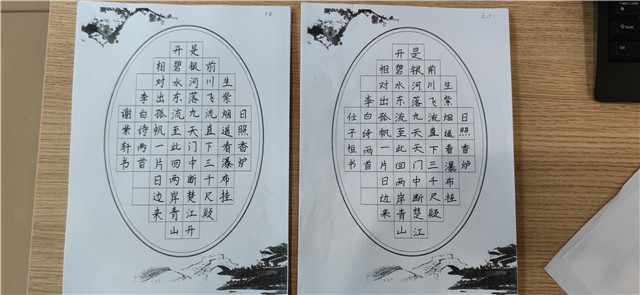 日照香炉
生紫烟遥看瀑布挂
前川飞流直下三千尺疑
是银河落九天门中断楚江开
开碧水东流至此回两岸青山
相对出孤帆一片日边来
李白诗两首
谢紫轩书
日照香炉
生紫烟遥看瀑布挂
前川飞流直下三千尺疑
是银河落九天天门中断楚江
开碧水东流至此回两岸青山
相对出孤帆一片日边来
李白诗两首
仕子桓书